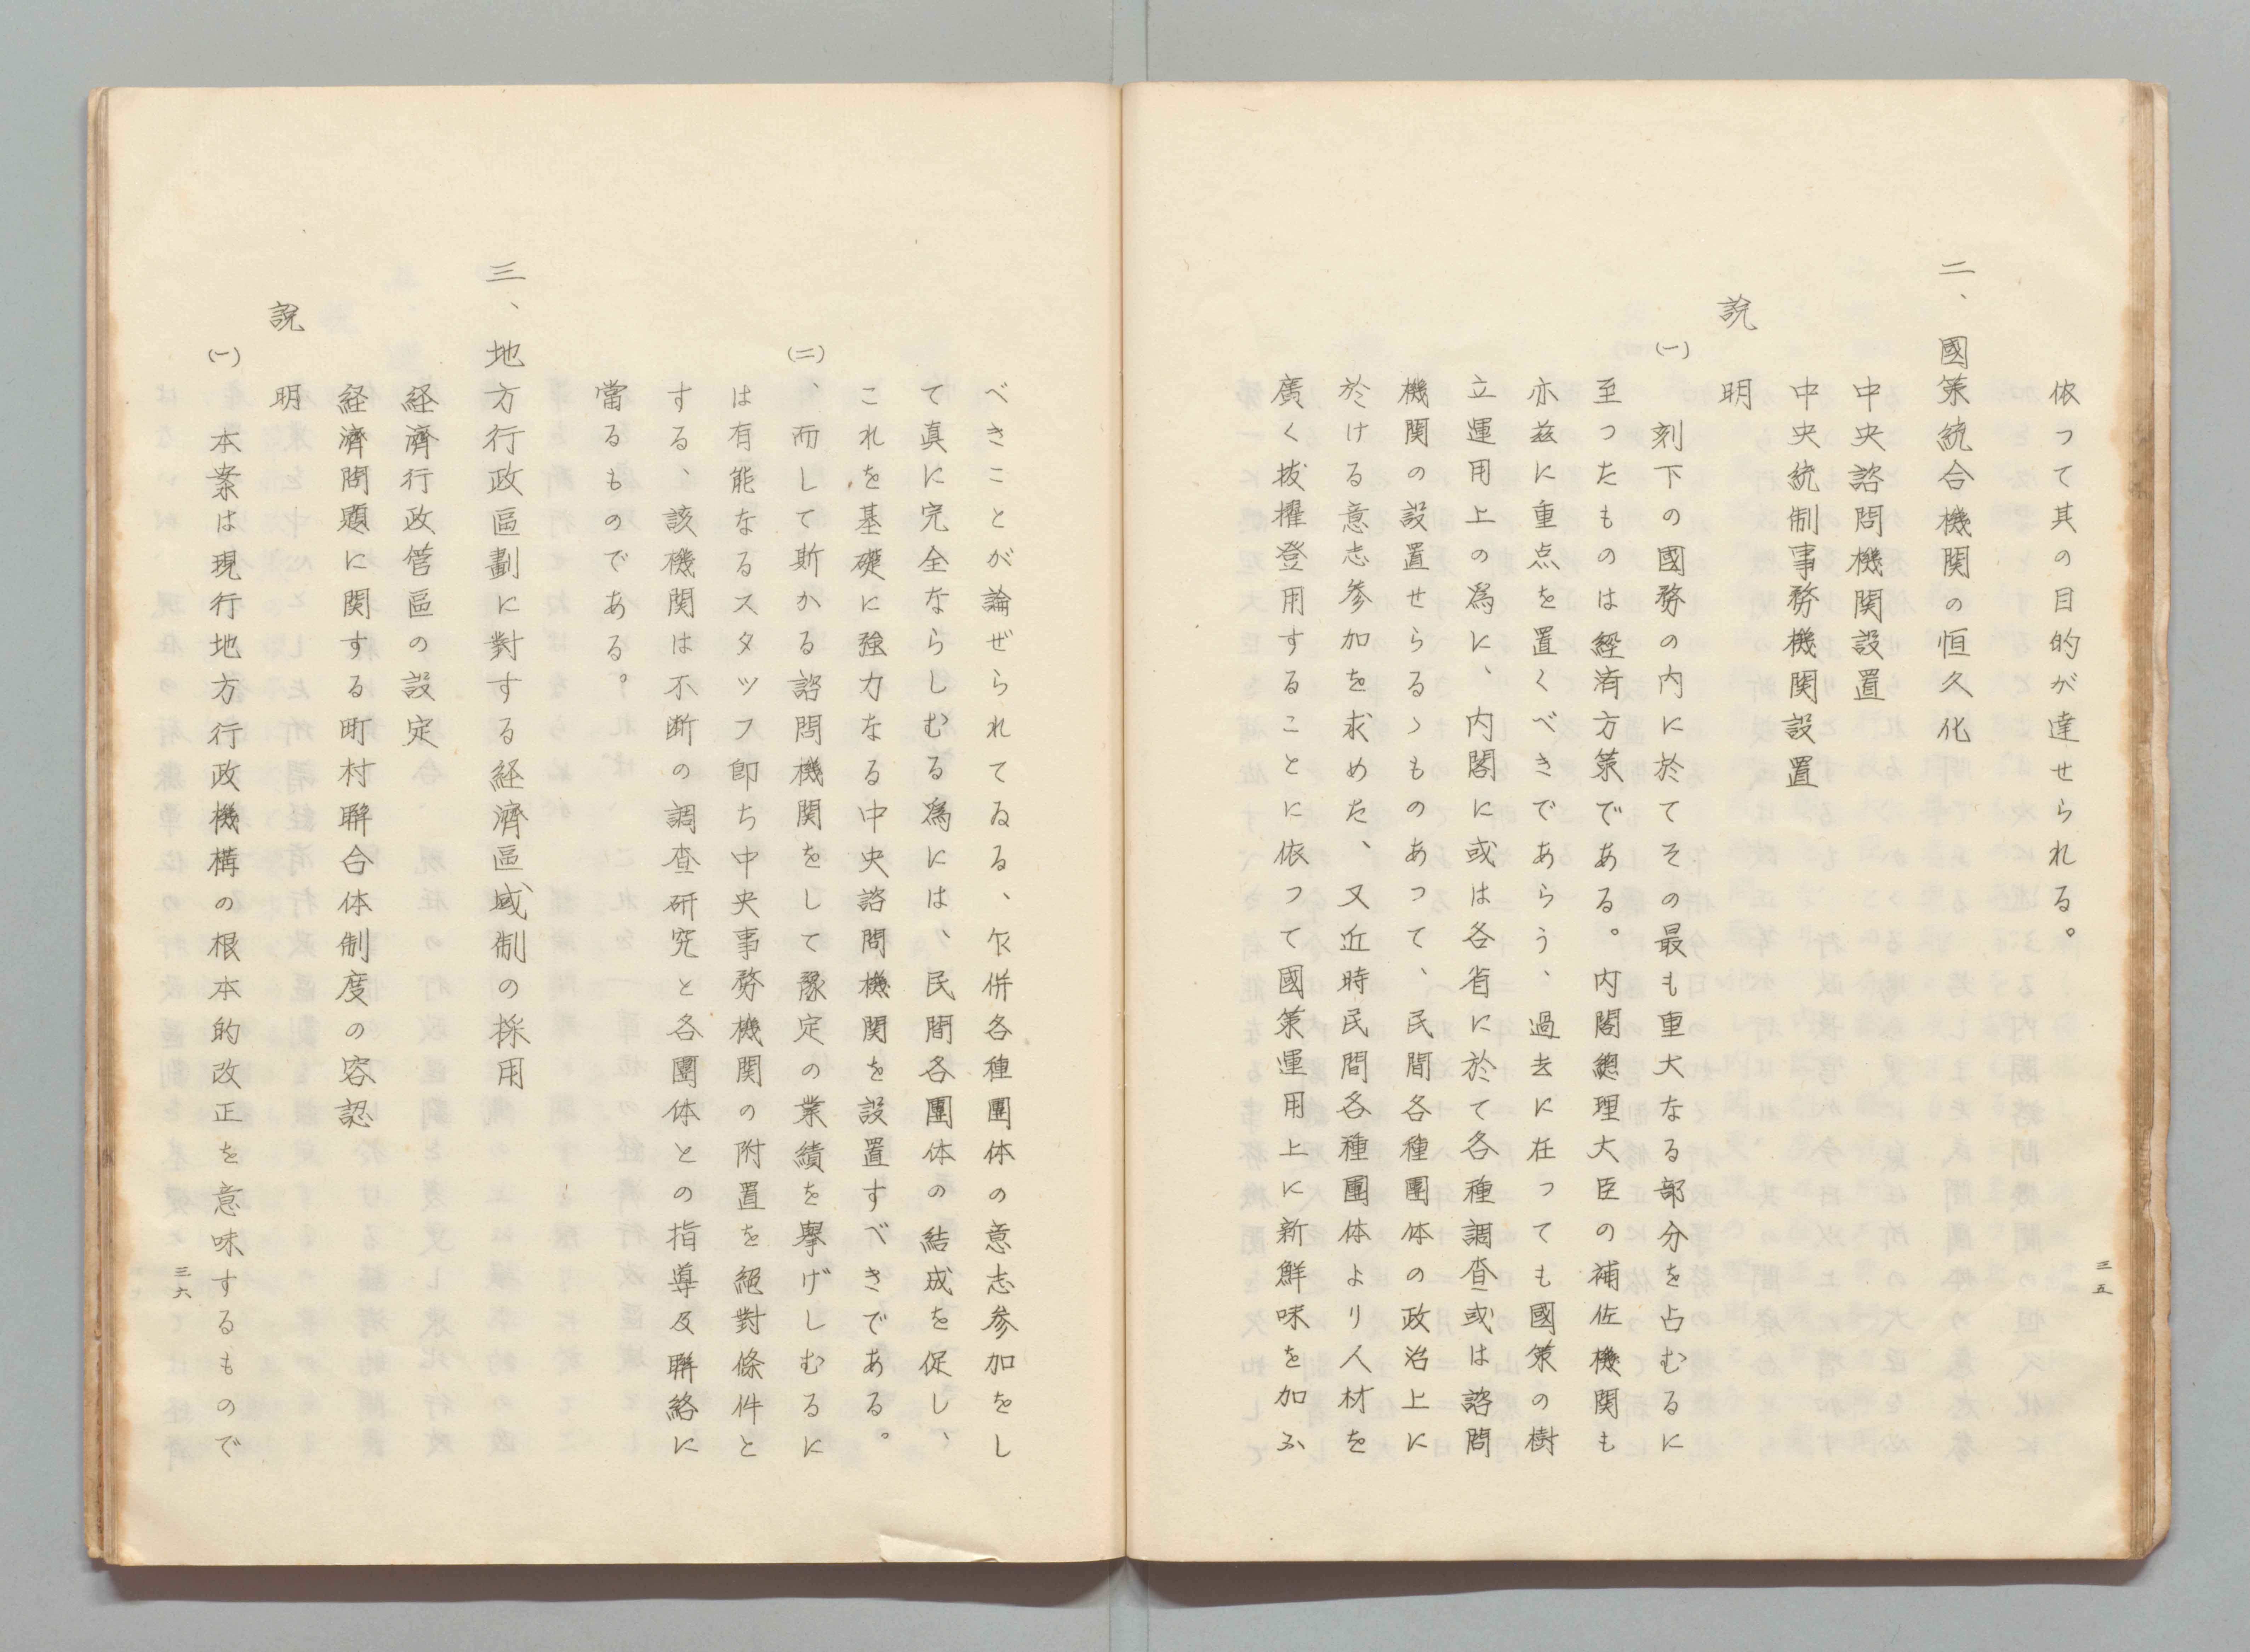 依って其の目的が達せられる。
二、國策統合機関の恒久化
中央諮問機関設置
中央統制事務機関設置
說明
(一) 刻下の國務の内に於てその最も重大なる部分を占むるに
至ったものは経済方策である。内閣總理大臣の補佐機関も
亦茲に重点を置くべきであらう、過去に在っても國策の樹
立運用上の爲に、内閣に或は各省に於て各種調査或は諮問
機関の設置せらるゝものあって、民間各種團体の政治上に
於ける意志参加を求めた、又近時民間各種團体より人材を
廣く拔擢登用することに依って國策運用上に新鮮味を加ふ
三五
べきことが論ぜられてゐる、併各種團体の意志参加をし
て真に完全ならしむる爲には、民間各團体の結成を促し、
これを基礎に強力なる中央諮問機関を設置すべきである。
(二)、而して斯かる諮問機関をして豫定の業績を擧げしむるに
は有能なるスタッフ卽ち中央事務機関の附置を絕對條件と
する、該機関は不断の調査研究と各團体との指導及聯絡に
當るものである。
三、地方行政區劃に對する経濟區域制の採用
経濟行政管區の設定
経濟問題に関する町村聯合体制度の容認
說明
(一) 本案は現行地方行政機構の根本的改正を意味するもので
三六